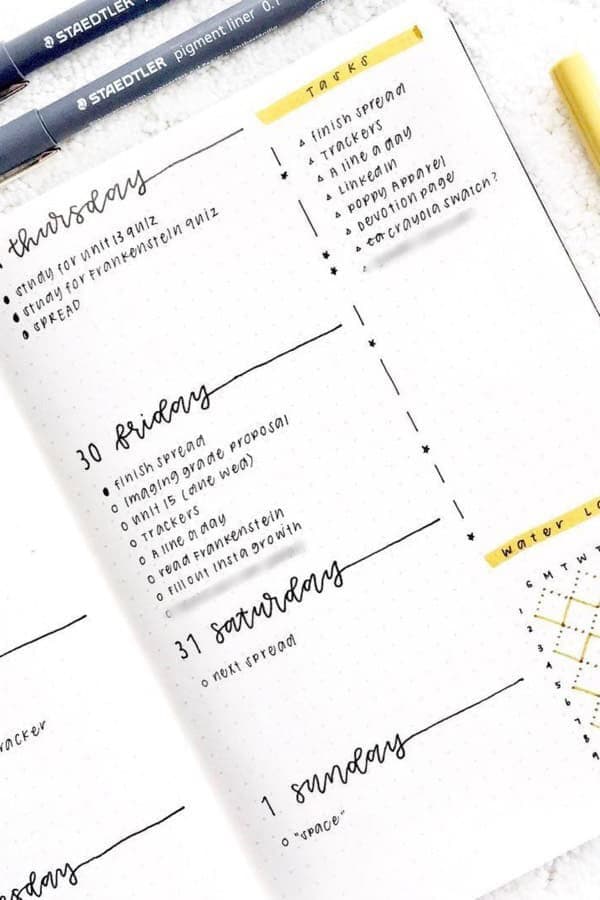 STAEDTLER
STAEDTLER pigment liner 0.1
thursday
study for unit 13 quiz
study for Frankenstein quiz
SPREAD
30 friday
finish spread
imaging grade proposal
unit 15 (due wed)
Trackers
A line a day
read Frankenstein
Fill out Insta growth
31 saturday
next spread
1 sunday
"space"
Tasks
finish spread
Trackers
A line a day
LinkedIn
Poppy Apparel
Devotion page
crayola swatch?
water Lo
S M T W T
1
2
3
4
5
6
7
8
9
racker
sday